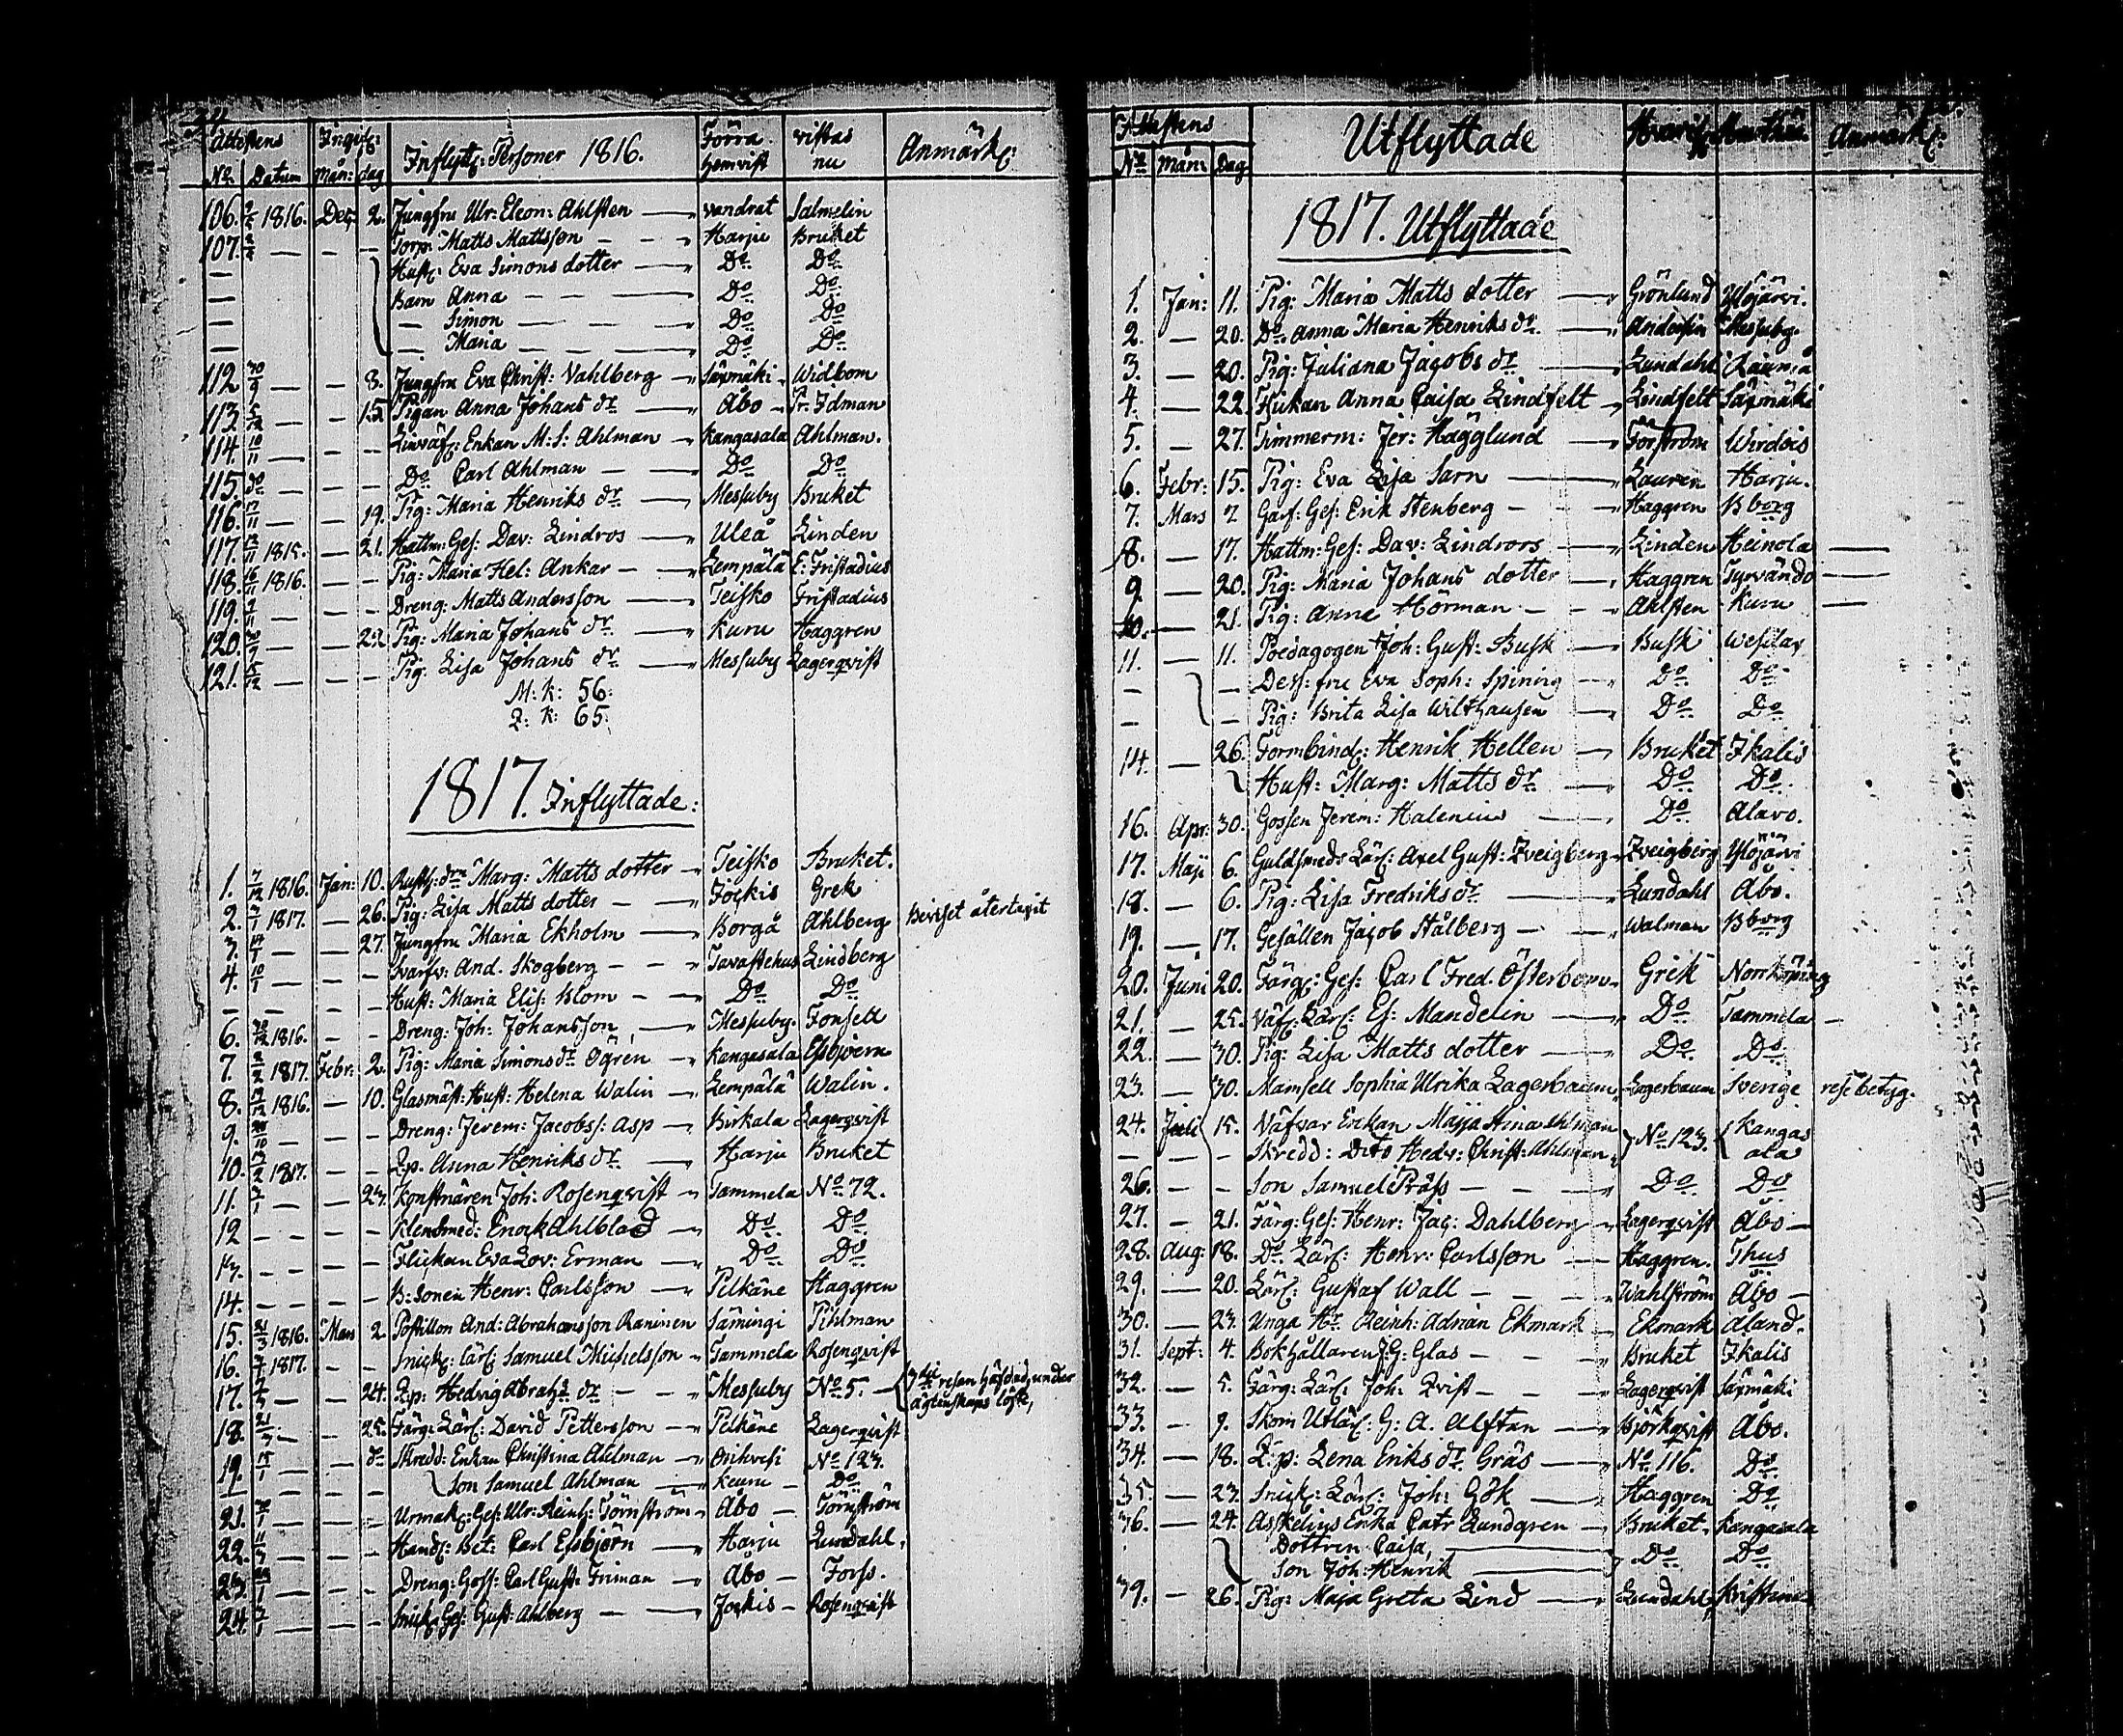 Attestens Ingifc: Inflyttc: Personer 1816. Förra hemvist vistas nu Anmärkc:
No Datum Mån: dag
106. 1816. Dec. 2. Jungfru Ulr: Eleon: Ahlsten — vandrat Salmelin
107. — — — Torp: Matts Mattsson — — Harju Bruket
— Hustc: Eva Simons dotter — Do Do
— Barn Anna — — Do Do
— — Simon — — Do Do
— — Maria — — Do Do
112 30/9 — — 8. Jungfru Eva Christ: Vahlberg — Säxmäki Widbom
113. 5/12 — — 15. Pigan Anna Johans dr — Åbo — Pr. Idman
114. 10/11 — — — Linväfc: Enkan M: S: Ahlman — Kangasala Ahlman.
115. do — — — Do Carl Ahlman — — Do Do
116. 17/11 — — 19. Pig: Maria Henriks dr — Messuby Bruket
117. 1815. — 21. Hattm: Ges: Dav: Lindros — Uleå Linden
118. 16/11 1816. — — Pig: Maria Hel: Ankar — — Lempälä E: Fristadius
119. — — — Dreng: Matts Andersson — Teisko Fristadius
120. — — 22 Pig: Maria Johans dr — Kuru Haggren
121. 15/12 — — — Pig: Lisa Johans dr — Messuby Lagerqvist
M: K: 56.
Q: K: 65.
1817. Inflyttade:
1. 7/12 1816. Jan: 10. Rusth: drn Marg: Matts dotter — Teisko Bruket.
2. 1817. — 26. Pig: Lisa Matts dotter — — Jockis Grek
3. — — 27. Jungfru Maria Ekholm — Borgå Ahlberg Beviset återtagit
4. 10/1 — — — Svarfv: And. Skogberg — — Tavastehus Lindberg
— — — — Hust: Maria Elis: Blom — — Do Do
6. 1816. — — Dreng: Joh: Johansson — Messuby. Fonsell
7. 2/2 1817. Febr: 2. Pig: Maria Simonsdr Ögrén — Kangasala Essbjoern
8. 1816. — 10. Glasmäst: Hust: Helena Walin — Lempälä Walin.
9. — — — Dreng: Jerem: Jacobss: Asp — Birkala Lagerqvist
10. 1817. — — Qp: Anna Henriks dr — Harju Bruket
11. — — 23. Konstnären Joh: Rosenqvist — Tammela No 72.
12 — — — — Klensmed: Enock Ahlblad — Do Do
13. — — — — Flickan Eva Lov: Erman — Do Do
14. — — — — B: sonen Henr: Carlsson — Pelkäne Haggren
15. 21/3 1816. Mars 2. Postillon And: Abrahamsson Raninen Sämingi Pihlman
16. 1817. — — Snickc: Lärc: Samuel Michelsson — Tammela Rosenqvist
17. — — 24. Qp: Hedvig Abrahs dr — — Messuby No 5. — resan häfdad, under ägtenskaps löfte,
18. — — 25. Färg: Lärc: David Pettersson — Pelkäne Lagerqvist
19. 15/1 — — do Skredd: Enkan Christina Ahlman — Orihvesi No 123.
— — — — Son Samuel Ahlman — Keuru — Do
21. — — — Urmakc: Ges: Ulr: Reinh: Törnström — Åbo — Törnström
22. — — — Handc: Bet: Carl Essbjörn — Harju Lundahl.
23. — — — Dreng: Goss: Carl Gust: Friman — Åbo — Forss.
24. — — — Snickc: Ges: Gust: Ahlberg — — Jockis — Rosenqvist
Attestens Utflyttade Anmärkc:
No Mån: Dag
1817. Utflyttade
1. Jan: 11. Pig: Maria Matts dotter — Grönlund Ylöjärvi.
2. — 20. Do Anna Maria Henriks dr — Andersin Messuby.
3. — 20. Pig: Juliana Jacobs dr — Lundahl Raumå
4. — 22. Flickan Anna Caisa Lindfelt — Lindfelt Säxmäki
5. — 27. Timmerm: Jer: Hägglund — Forström Wirdois
6. Febr: 15. Pig: Eva Lisa Sarn — Lauren Harju.
7. Mars 7 Garf: Ges: Erik Stenberg — — Haggren Bborg
8. — 17. Hattm: Ges: Dav: Lindroos — Linden Heinola —
9. — 20. Pig: Maria Johans dotter — Haggren Tyrvändö —
10. — 21. Pig: Anna Hörman — — Ahlsten Kuru —
11. — 11. Pœdagogen Joh: Gust: Busk — Busk Wesilax
— — Dess: fru Eva Soph: Spining — Do Do
— — Pig: Brita Lisa Wilthausen — Do Do
14. — 26. Formbindc: Henrik Hellen — Bruket Ikalis
Hust: Marg: Matts dr — Do Do
16. Apr: 30. Gossen Jerem: Halenius — Do Alavo.
17. Maji 6. Guldsmeds Lärc: Axel Gust: Zveigberg — Zveigberg Ylöjärvi
18. — 6. Pig: Lisa Fredriks dr — Lundahl Åbo.
19. — 17. Gesällen Jacob Stålberg — — Walman Bborg
20. Juni 20. Färg: Ges: Carl Fred. Österbom — Grek Norrköping
21. — 25. Väfc: Lärc: Es: Mandelin — Do Tammela —
22. — 30. Pig: Lisa Matts dotter — Do Do
23. — 30. Mamsell Sophia Ulrika Lagerbaum — Lagerbaum Sverige resebetyg.
24. Juli 15. Väfvar Enkan Majja Stina Ahlman No 123. Kangas
— — — Skredd: Dito Hedv: Christ: Ahlman ala
26. — — Son Samuel Präss — — Do Do
27. — 21. Färg: Ges: Henr: Jac: Dahlberg — Lagerqvist Åbo —
28. Aug: 18. Do Lärc: Henr: Carlsson — Haggren. Thus
29. — 20. Lärc: Gustaf Wall — — Wahlström Åbo —
30. — 23. Unga Hr Reinh: Adrian Ekmark — Ekmark Åland.
31. Sept: 4. Bokhållaren J: G: Glas — — Bruket Ikalis
32. — 5. Färg: Lärc: Joh: Qvist — — Lagerqvist Säxmäki
33. — 9. Skom Utlärc: G: A. Alftan — Björkqvist Åbo.
34. — 18. Q: p: Lena Eriks dr Gräs — No 116. Do
35. — 23. Snickc: Lärc: Joh: Gök — Haggren Do
36. — 24. Asskelius Enka Catr Lundgren — Bruket. Kangasala
Dottren Caisa, — Do Do
Son Joh: Henrik —
39. — 26. Pig: Maja Greta Lind — Lundahl